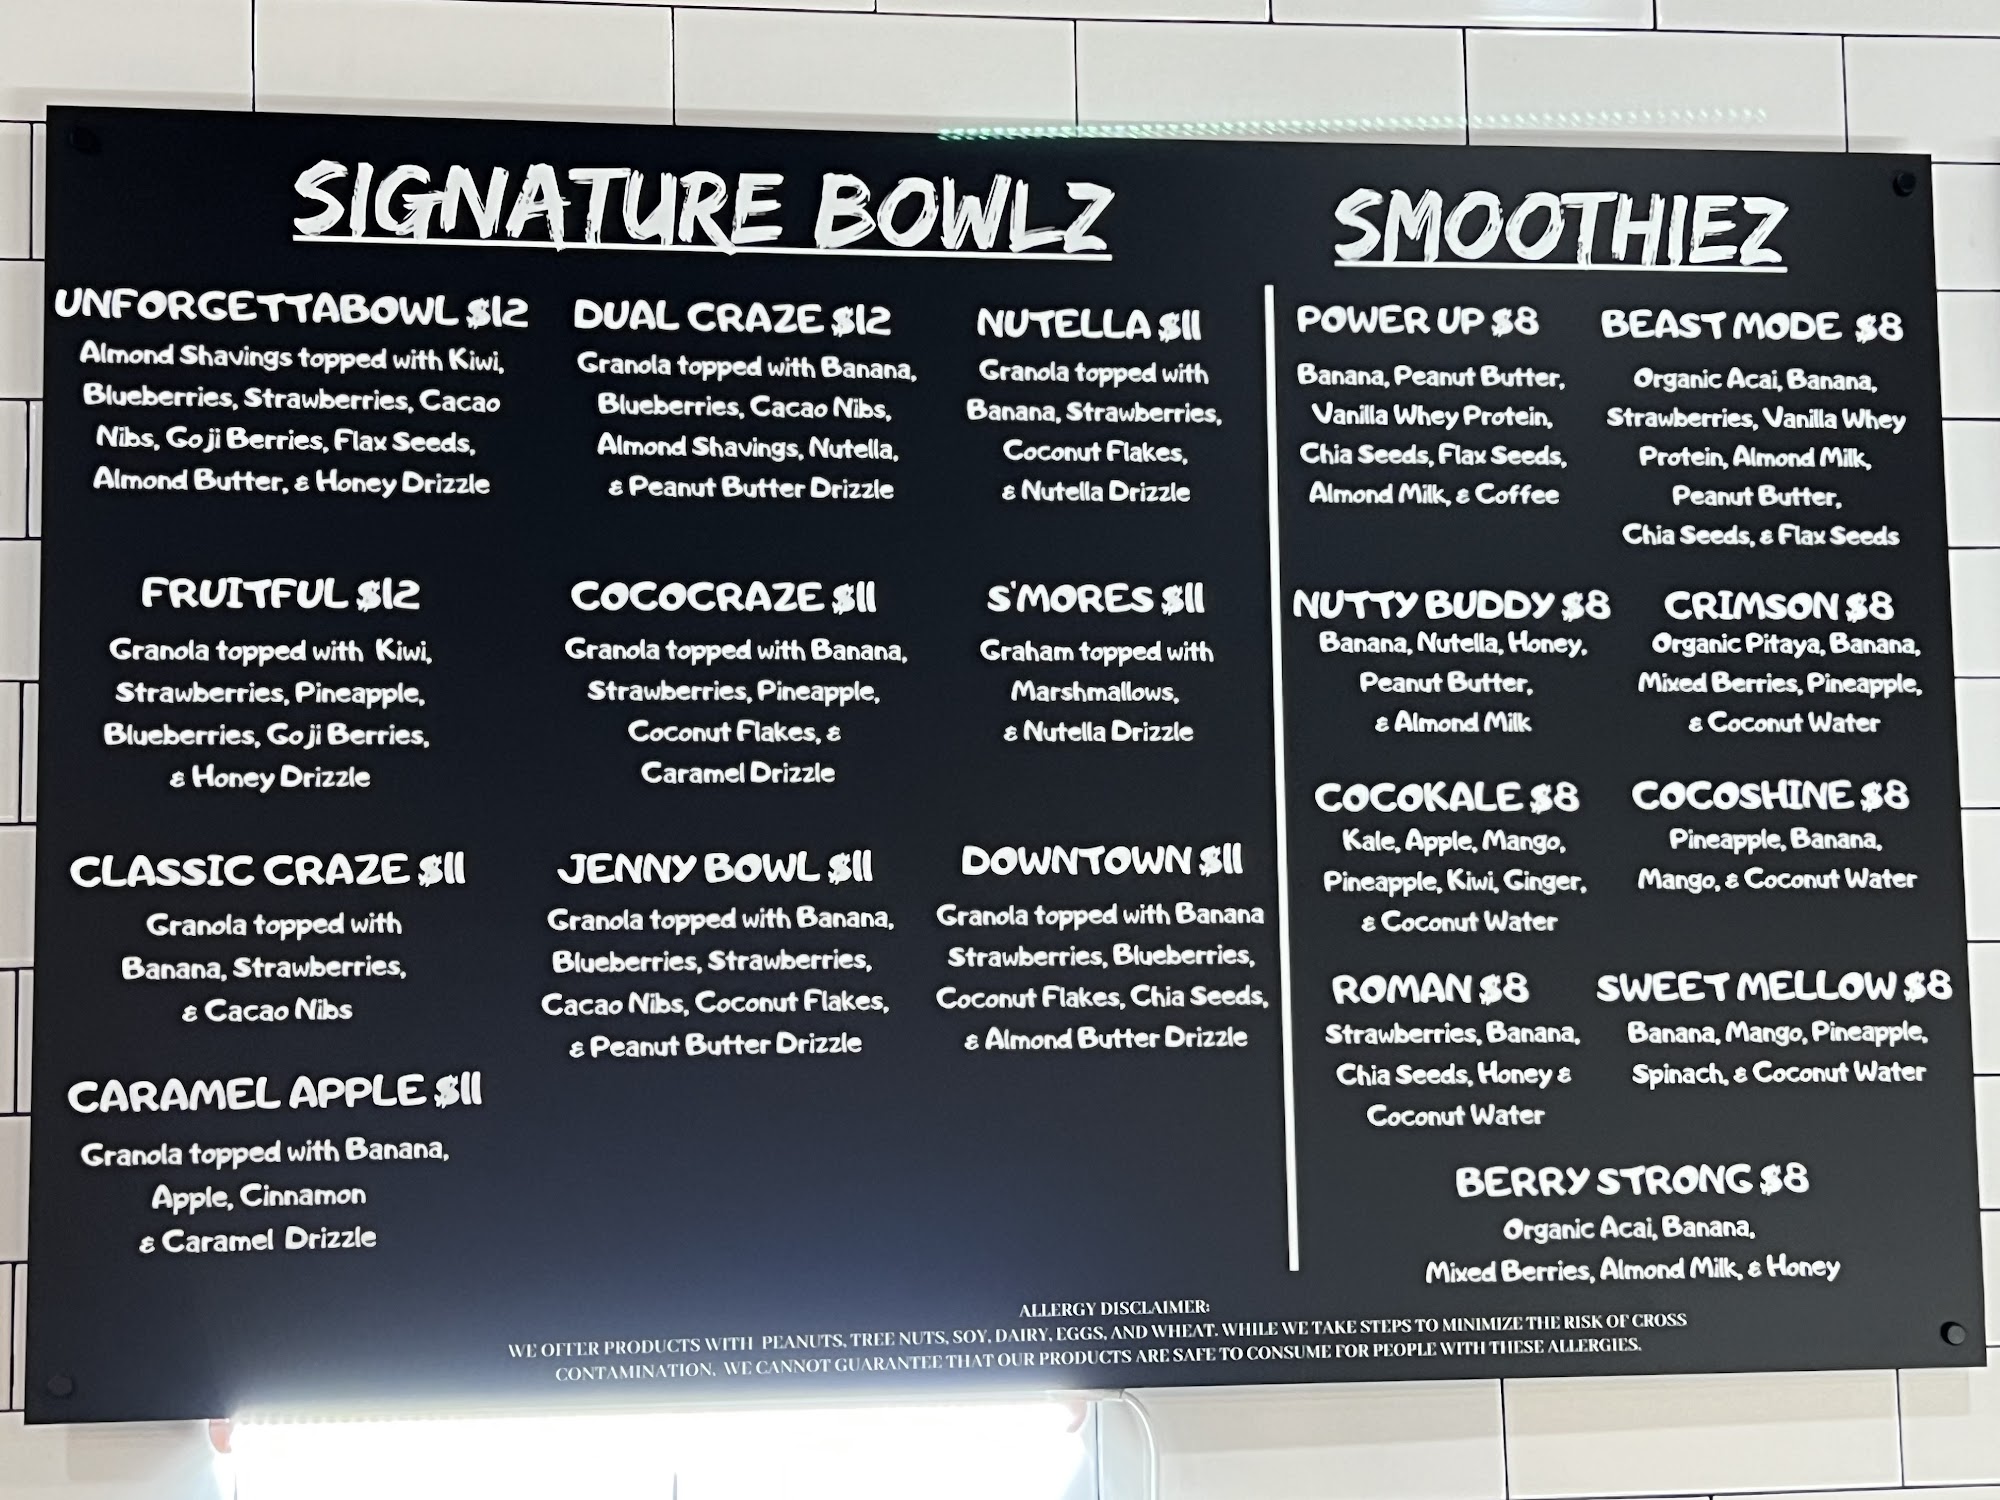 SIGNATURE BOWLZ
UNFORGETTABOWL $12
Almond Shavings topped with Kiwi,
Blueberries, Strawberries, Cacao
Nibs, Goji Berries, Flax Seeds,
Almond Butter, & Honey Drizzle
DUAL CRAZE $12
Granola topped with Banana,
Blueberries, Cacao Nibs,
Almond Shavings, Nutella,
& Peanut Butter Drizzle
NUTELLA $11
Granola topped with
Banana, Strawberries,
Coconut Flakes,
& Nutella Drizzle
FRUITFUL $12
Granola topped with Kiwi,
Strawberries, Pineapple,
Blueberries, Goji Berries,
& Honey Drizzle
COCOCRAZE $11
Granola topped with Banana,
Strawberries, Pineapple,
Coconut Flakes, &
Caramel Drizzle
S'MORES $11
Graham topped with
Marshmallows,
& Nutella Drizzle
CLASSIC CRAZE $11
Granola topped with
Banana, Strawberries,
& Cacao Nibs
JENNY BOWL $11
Granola topped with Banana,
Blueberries, Strawberries,
Cacao Nibs, Coconut Flakes,
& Peanut Butter Drizzle
DOWNTOWN $11
Granola topped with Banana
Strawberries, Blueberries,
Coconut Flakes, Chia Seeds,
& Almond Butter Drizzle
CARAMEL APPLE $11
Granola topped with Banana,
Apple, Cinnamon
& Caramel Drizzle
SMOOTHIEZ
POWER UP $8
Banana, Peanut Butter,
Vanilla Whey Protein,
Chia Seeds, Flax Seeds,
Almond Milk, & Coffee
BEAST MODE $8
Organic Acai, Banana,
Strawberries, Vanilla Whey
Protein, Almond Milk,
Peanut Butter,
Chia Seeds, & Flax Seeds
NUTTY BUDDY $8
Banana, Nutella, Honey,
Peanut Butter,
& Almond Milk
CRIMSON $8
Organic Pitaya, Banana,
Mixed Berries, Pineapple,
& Coconut Water
COCOKALE $8
Kale, Apple, Mango,
Pineapple, Kiwi, Ginger,
& Coconut Water
COCOSHINE $8
Pineapple, Banana,
Mango, & Coconut Water
ROMAN $8
Strawberries, Banana,
Chia Seeds, Honey &
Coconut Water
SWEET MELLOW $8
Banana, Mango, Pineapple,
Spinach, & Coconut Water
BERRY STRONG $8
Organic Acai, Banana,
Mixed Berries, Almond Milk, & Honey
ALLERGY DISCLAIMER:
WE OFFER PRODUCTS WITH PEANUTS, TREE NUTS, SOY, DAIRY, EGGS, AND WHEAT. WHILE WE TAKE STEPS TO MINIMIZE THE RISK OF CROSS
CONTAMINATION, WE CANNOT GUARANTEE THAT OUR PRODUCTS ARE SAFE TO CONSUME FOR PEOPLE WITH THESE ALLERGIES.